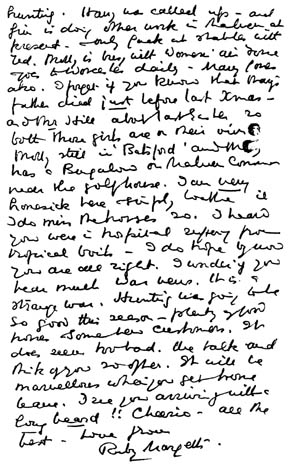 hunting. Harry was called up - and
Jim is doing other work in Malvern at
present - only Jack at stables with
Ted. Molly is busy with Women's
goes to Worcester daily - Mary
also. I forget if you know that Mary's
father died just before last Xmas -
and Mrs Hill about last Easter, so
both those girls are on their own
Molly still in 'Batsford' and
has a Bungalow on Malvern Common
near the golf house. I am very
homesick here - simply loathe it
I do miss the horses so. I heard
you were in hospital suffering from
tropical boils - I do hope by now
you are all right. I wonder if you
hear much war news. It is a
strange war. Hunting was going to be
so good this season - plenty of good
horses & some new customers. It
does seem too bad. We talk and
think of you so often. It will be
marvellous when you get home
leave. I see you arriving with a
long beard !! Cheerio - all the
best - love from
Ruby Margetts.